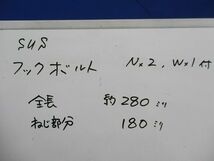 SUS
フックボルト N×2, W×1付
全長 約280ミリ
ねじ部分 180ミリ